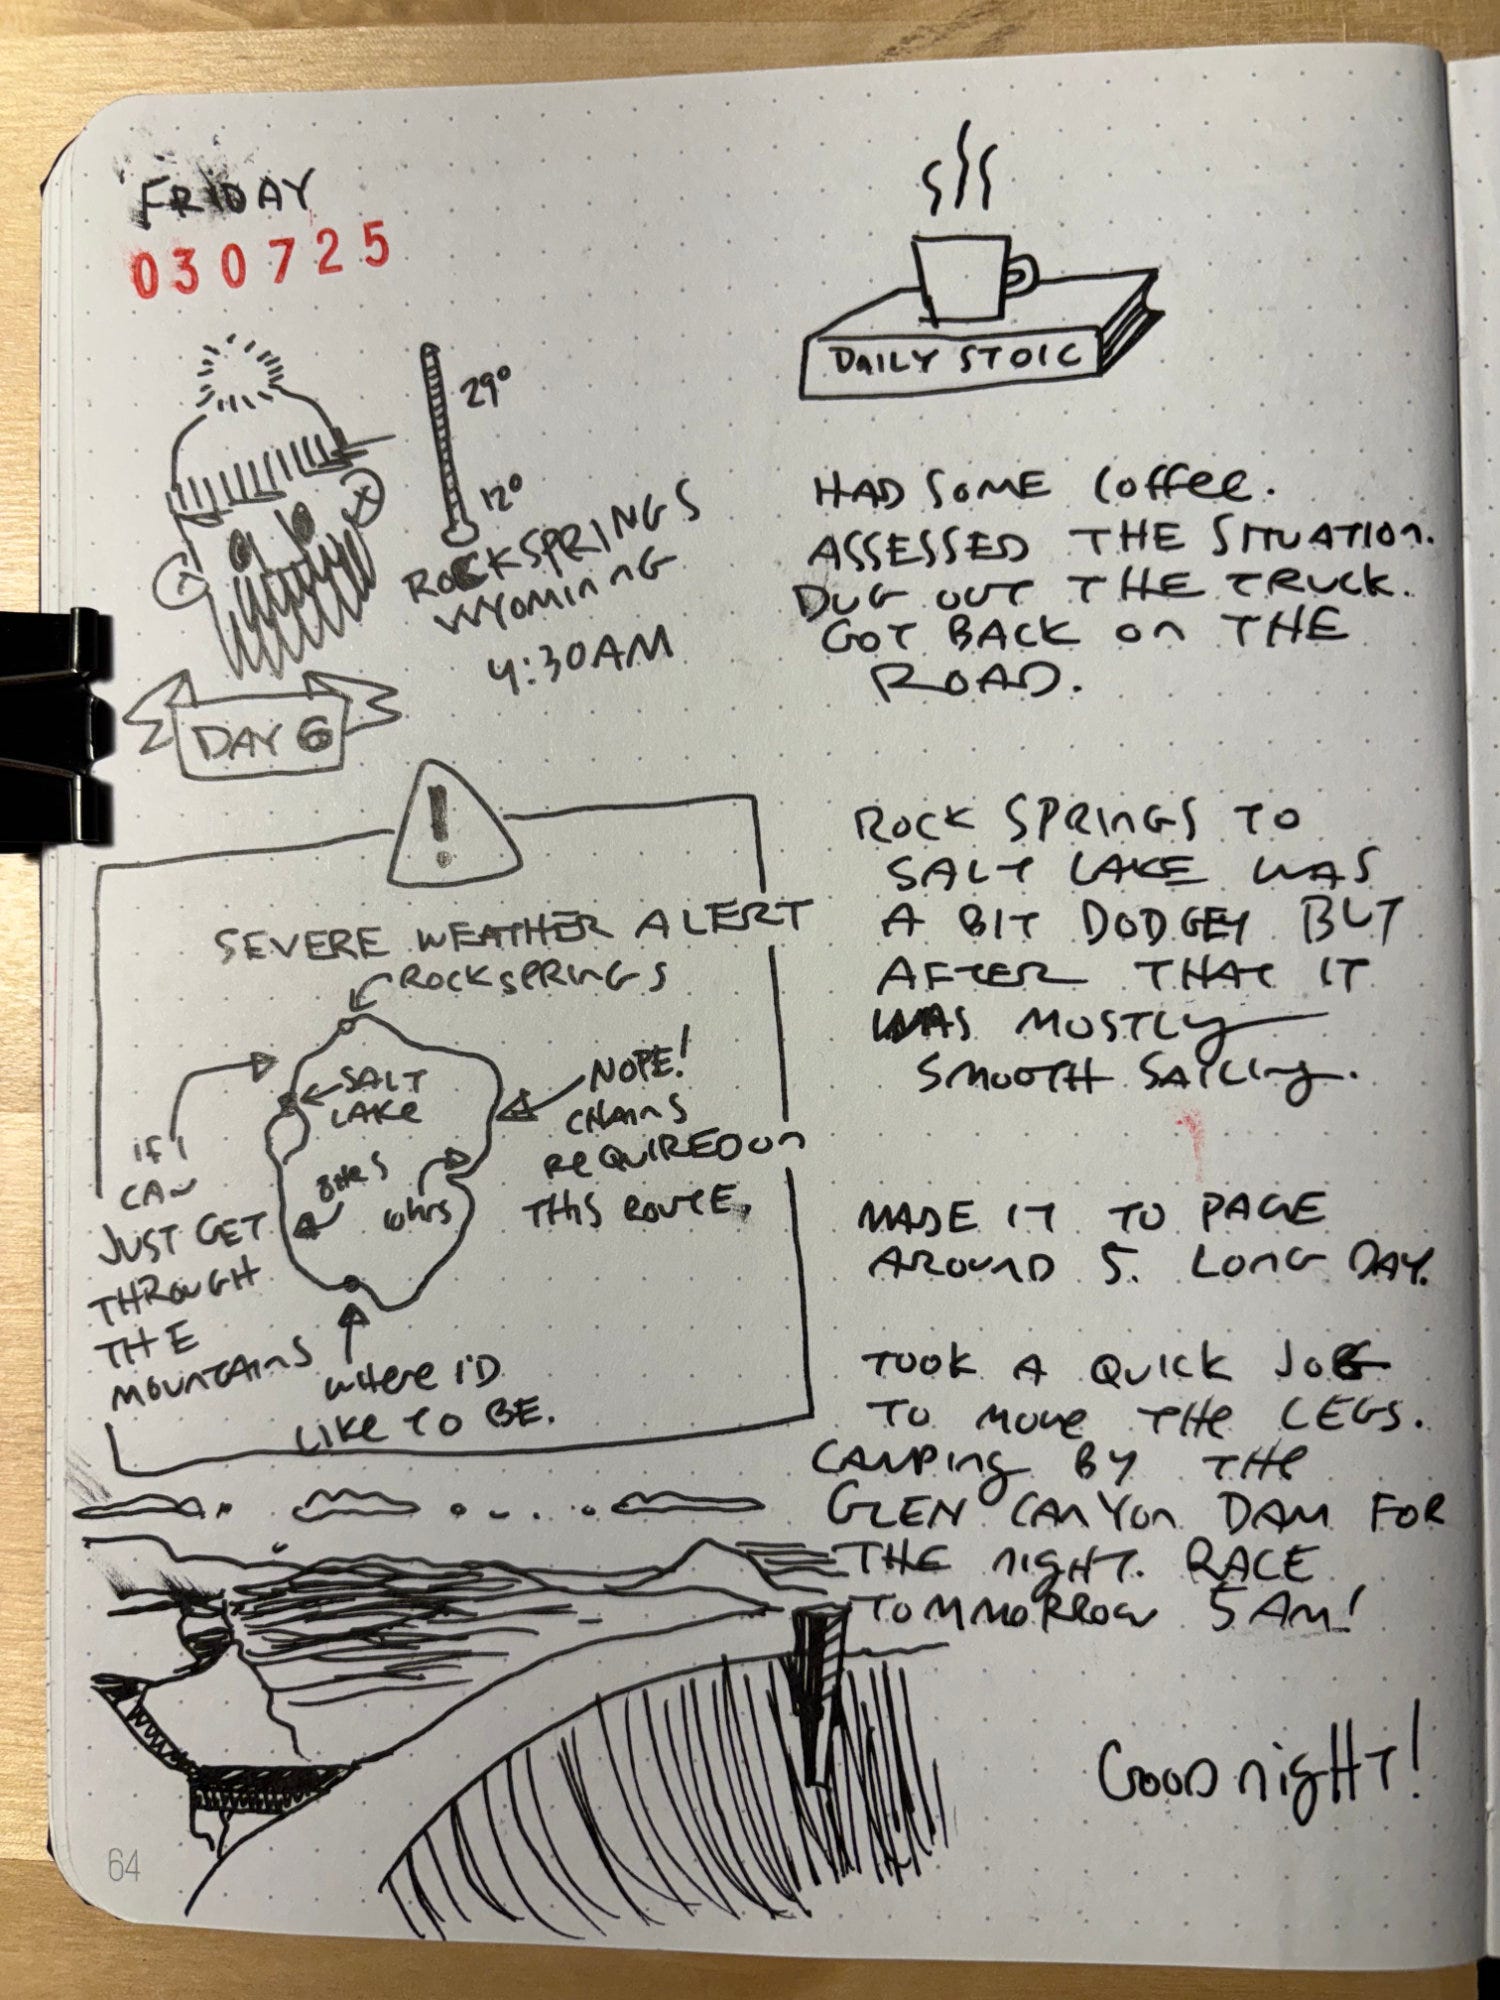 FRIDAY
030725
29°
12°
ROCKSPRINGS
WYOMING
4:30AM
DAY 6
!
SEVERE WEATHER ALERT
ROCKSPRINGS
SALT
LAKE
NOPE!
CHAINS
REQUIRED ON
THIS ROUTE.
IF I
CAN
JUST GET
THROUGH
THE
MOUNTAINS
8HRS
6hrs
WHERE I'D
LIKE TO BE.
DAILY STOIC
HAD SOME COFFEE.
ASSESSED THE SITUATION.
DUG OUT THE TRUCK.
GOT BACK ON THE
ROAD.
ROCK SPRINGS TO
SALT LAKE WAS
A BIT DODGEY BUT
AFTER THAT IT
WAS MOSTLY
SMOOTH SAILING.
MADE IT TO PAGE
AROUND 5. LONG DAY.
TOOK A QUICK JOG
TO MOVE THE LEGS.
CAMPING BY THE
GLEN CANYON DAM FOR
THE NIGHT. RACE
TOMMORROW 5AM!
GOOD NIGHT!
64